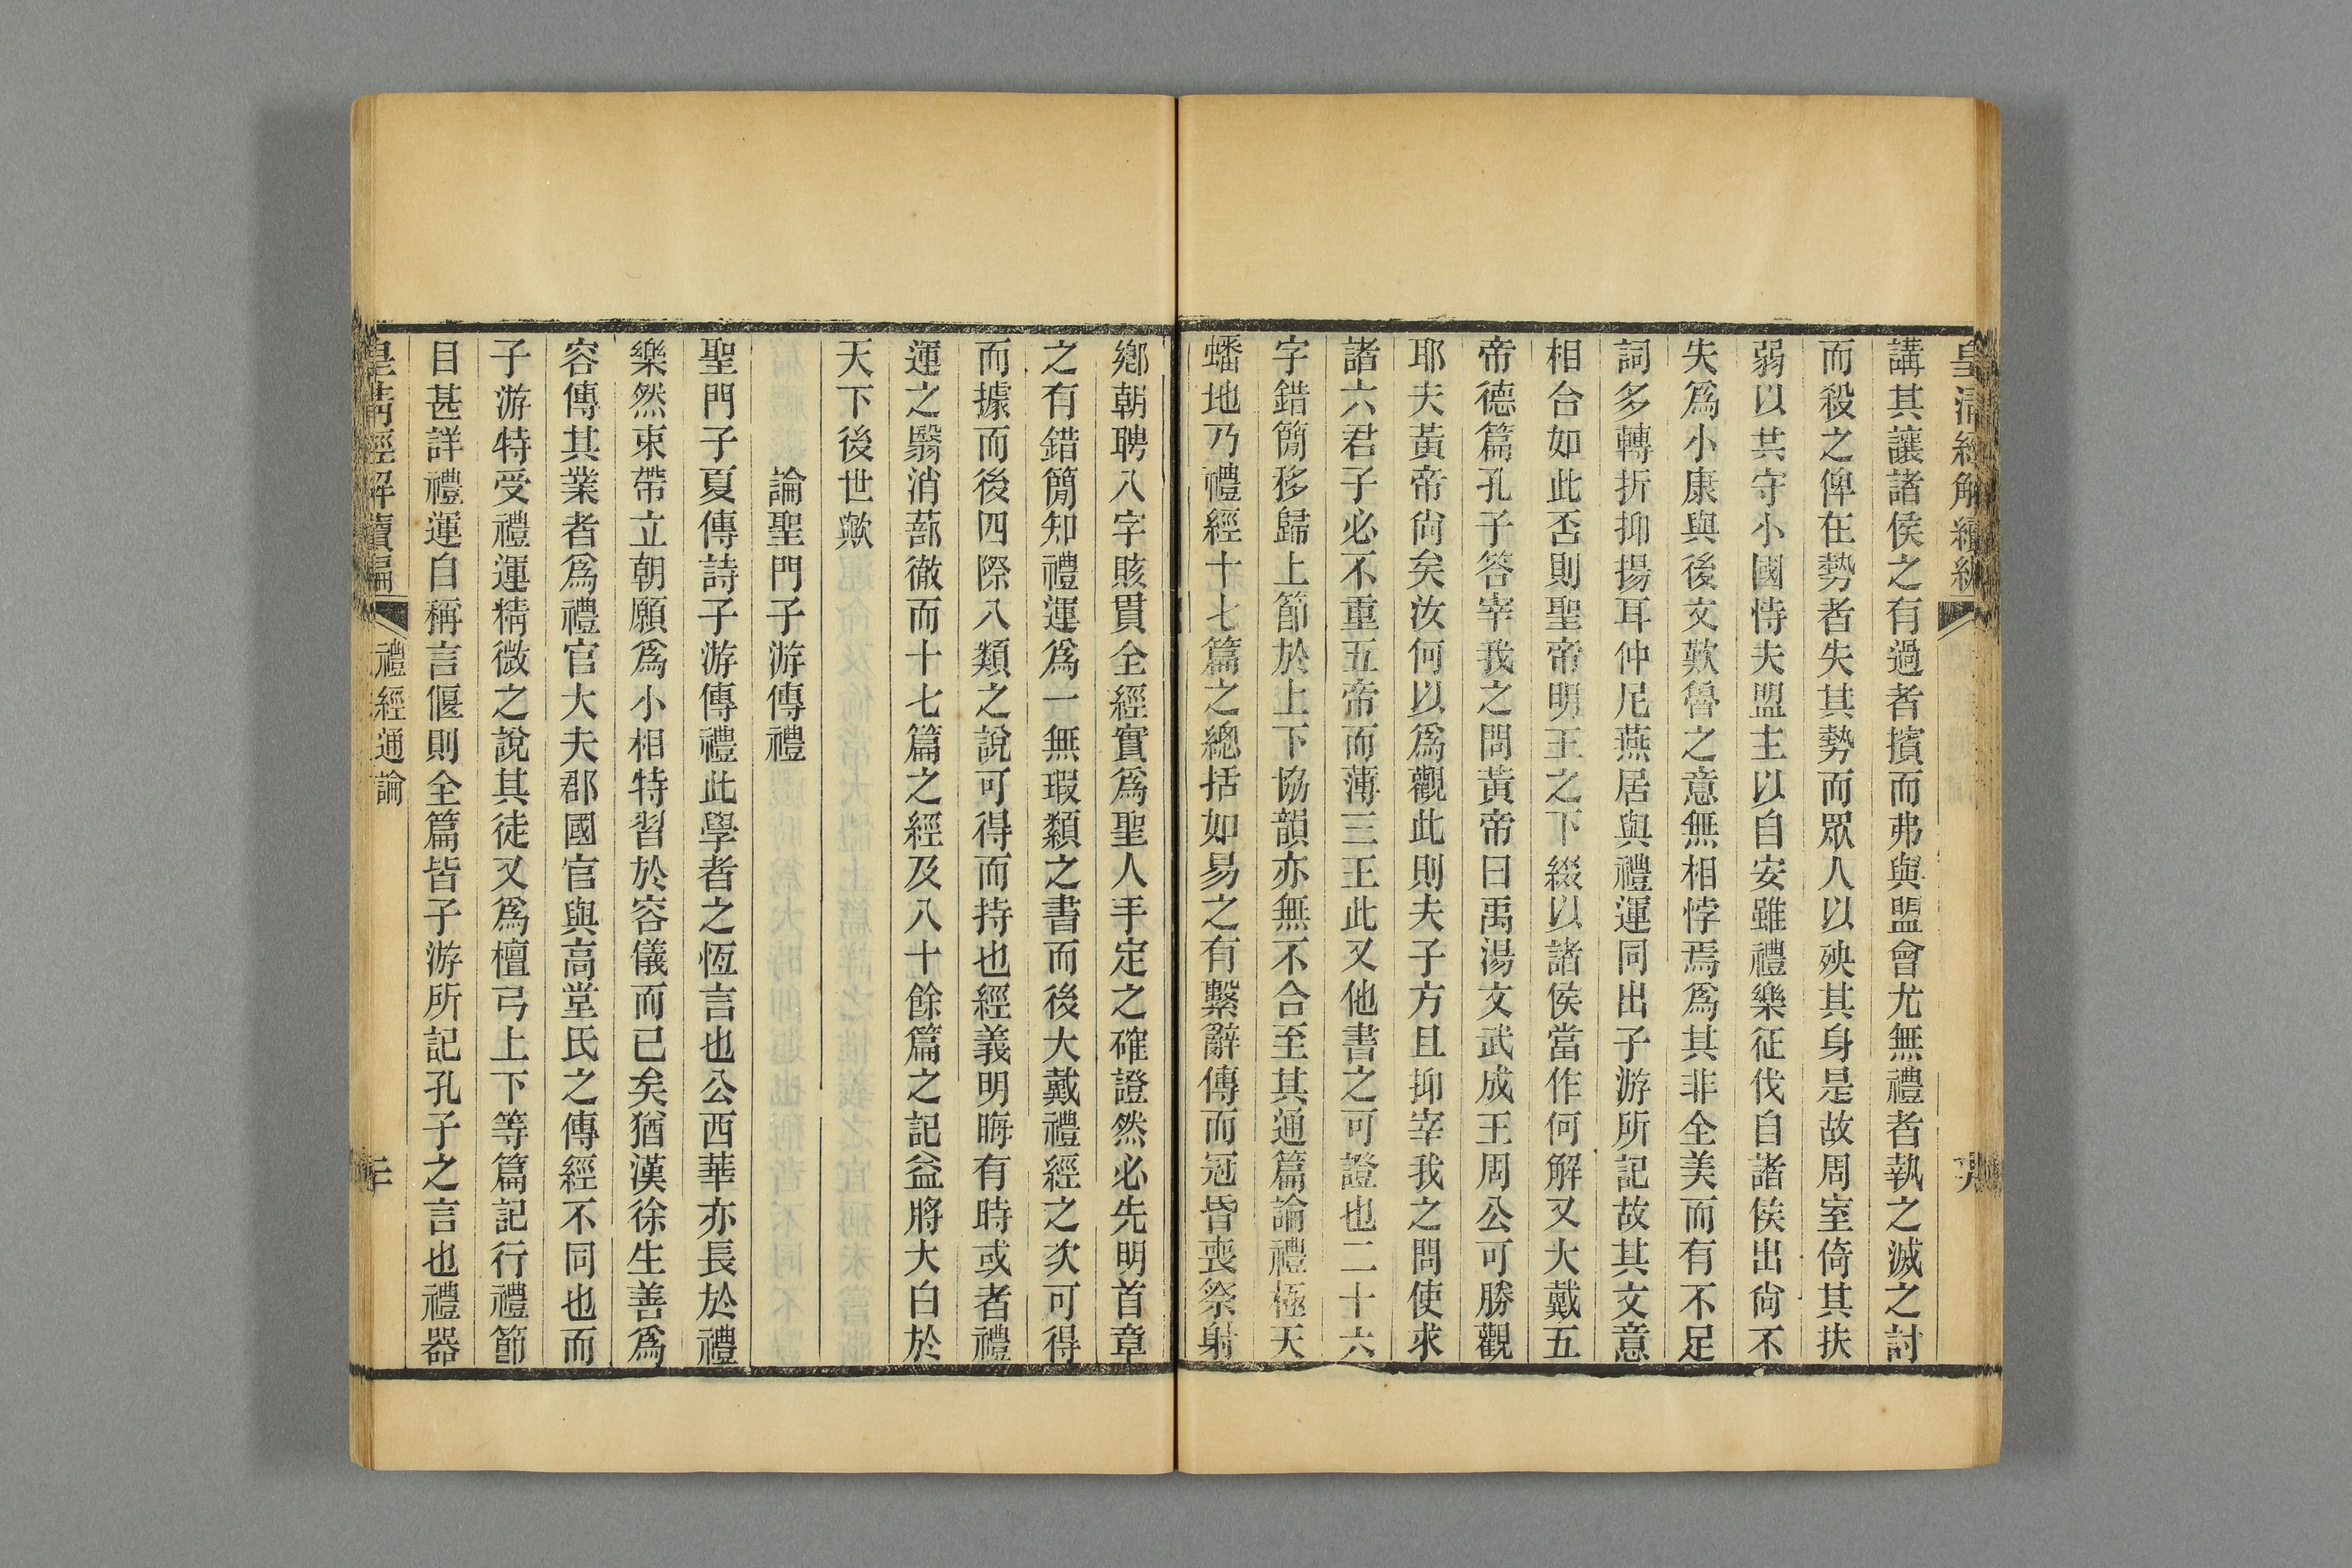 皇清經解續編
講其讓諸侯之有過者擯而弗與盟會尤無禮者執之滅之討
而殺之俾在勢者失其勢而眾人以殃其身是故周室倚其扶
弱以共守小國恃夫盟主以自安雖禮樂征伐自諸侯出尙不
失爲小康與後文歎魯之意無相悖焉爲其非全美而有不足
詞多轉折抑揚耳仲尼燕居與禮運同出子游所記故其文意
相合如此否則聖帝明王之下綴以諸侯當作何解又大戴五
帝德篇孔子答宰我之問黃帝曰禹湯文武成王周公可勝觀
耶夫黃帝尙矣汝何以爲觀此則夫子方且抑宰我之問使求
諸六君子必不重五帝而薄三王此又他書之可證也二十六
字錯簡移歸上節於上下協韻亦無不合至其通篇論禮極天
蟠地乃禮經十七篇之總括如易之有繫辭傳而冠昏喪祭射
鄉朝聘八字賅貫全經實爲聖人手定之確證然必先明首章
之有錯簡知禮運爲一無瑕纇之書而後大戴禮經之次可得
而據而後四際八類之說可得而持也經義明晦有時或者禮
運之翳消蔀徹而十七篇之經及八十餘篇之記益將大白於
天下後世歟
論聖門子游傳禮
聖門子夏傳詩子游傳禮此學者之恆言也公西華亦長於禮
樂然束帶立朝願爲小相特習於容儀而已矣猶漢徐生善爲
容傳其業者爲禮官大夫郡國官與高堂氏之傳經不同也而
子游特受禮運精微之說其徒又爲檀弓上下等篇記行禮節
目甚詳禮運自稱言偃則全篇皆子游所記孔子之言也禮器
皇清經解續編
禮經通論